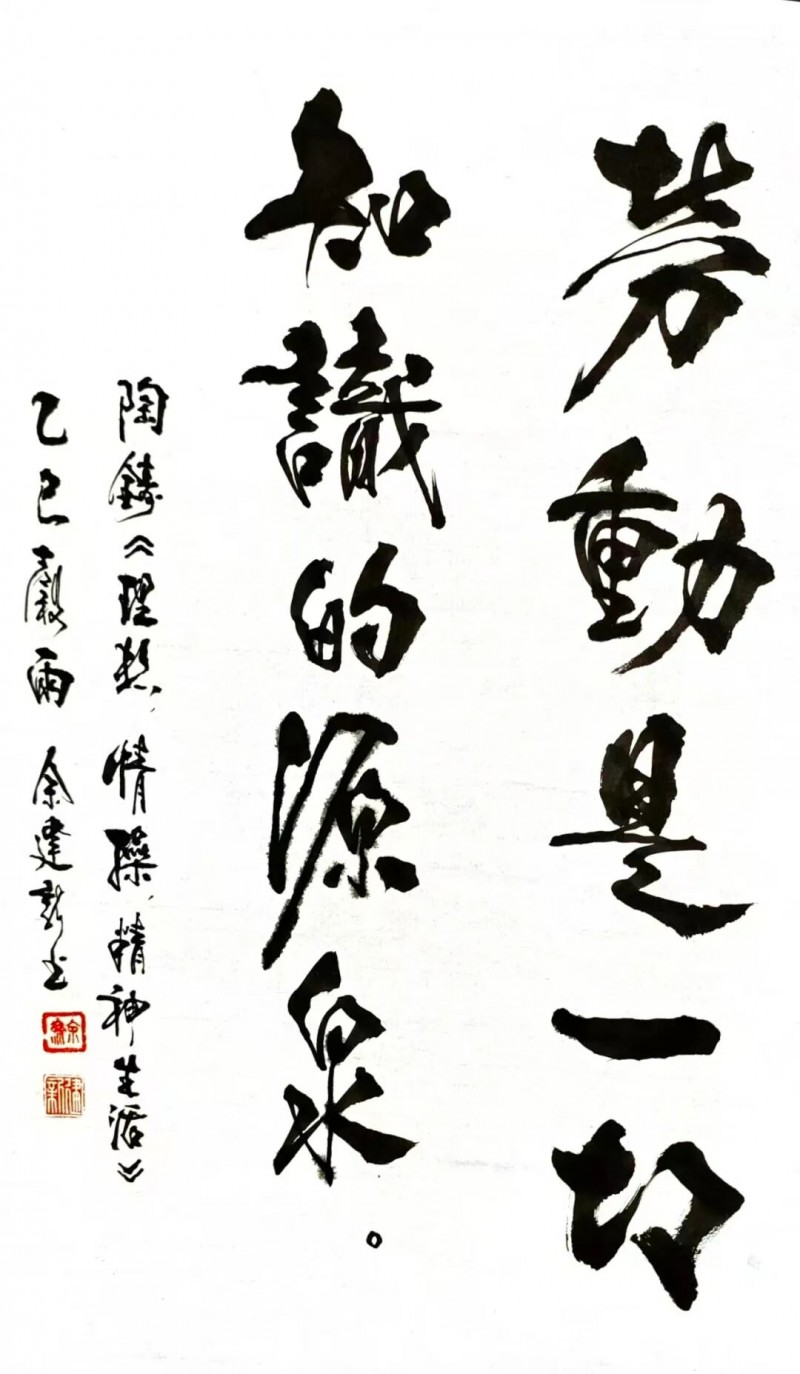 劳動是一切
知識的源泉。
陶鑄《理想，情操，精神生活》
乙巳穀雨 余建新书
余
建新